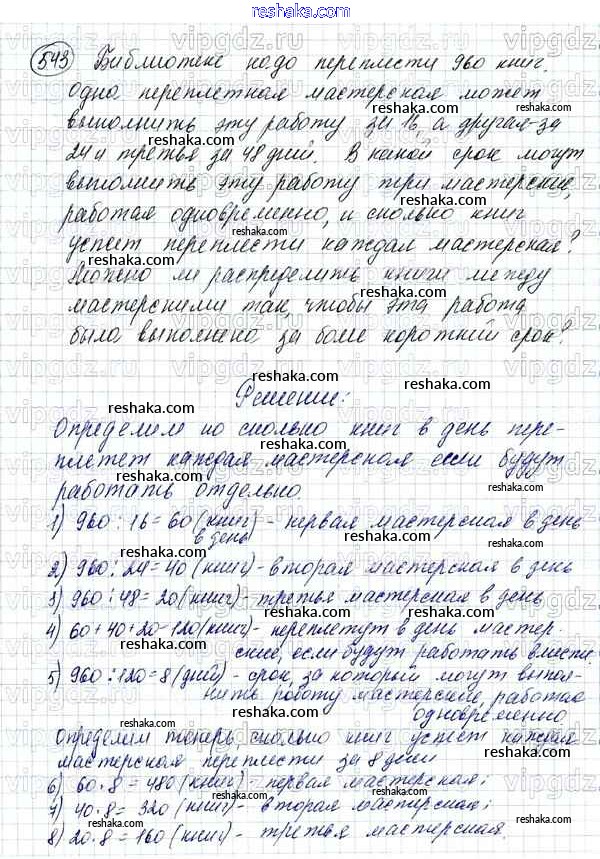 reshaka.com
543 Библиотеке надо переплести 960 книг.
Одна переплетная мастерская может
выполнить эту работу за 16, а другая-за
24 и третья за 48 дней. В какой срок могут
выполнить эту работу три мастерские,
работая одновременно, и сколько книг
успеет переплести каждая мастерская?
Можно ли распределить книги между
мастерскими так, чтобы эта работа
была выполнена за более короткий срок?
Решение:
Определим по сколько книг в день пере-
плетет каждая мастерская если будут
работать отдельно.
1) 960 : 16 = 60 (книг) - первая мастерская в день
в день
2) 960 : 24 = 40 (книг) - вторая мастерская в день
3) 960 : 48 = 20 (книг) - третья мастерская в день
4) 60 + 40 + 20 - 120 (книг) - переплетут в день мастер-
ские, если будут работать вместе.
5) 960 : 120 = 8 (дней) - срок, за котором могут выпол-
нить работу мастерские, работая
одновременно
Определим теперь, сколько книг успеет каждая
мастерская переплести за 8 дней
6) 60 · 8 = 480 (книг) - первая мастерская;
7) 40 · 8 = 320 (книг) - вторая мастерская;
8) 20 · 8 = 160 (книг) - третья мастерская.